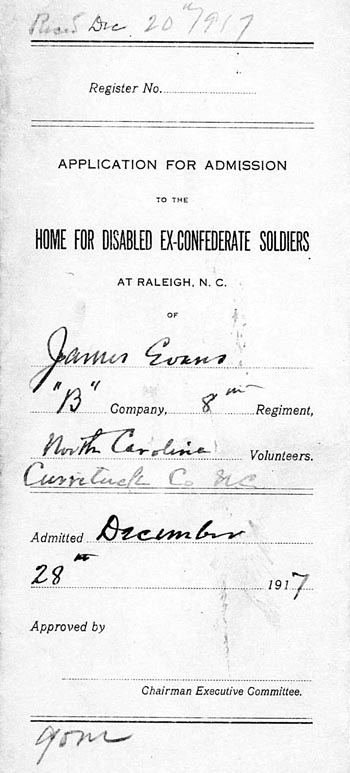 Rec'd Dec 20th 1917
Register No.
APPLICATION FOR ADMISSION
TO THE
HOME FOR DISABLED EX-CONFEDERATE SOLDIERS
AT RALEIGH, N. C.
OF
James Evans
"B" Company, 8th Regiment,
North Carolina Volunteers.
Currituck Co NC
Admitted December
28th 1917
Approved by
Chairman Executive Committee.